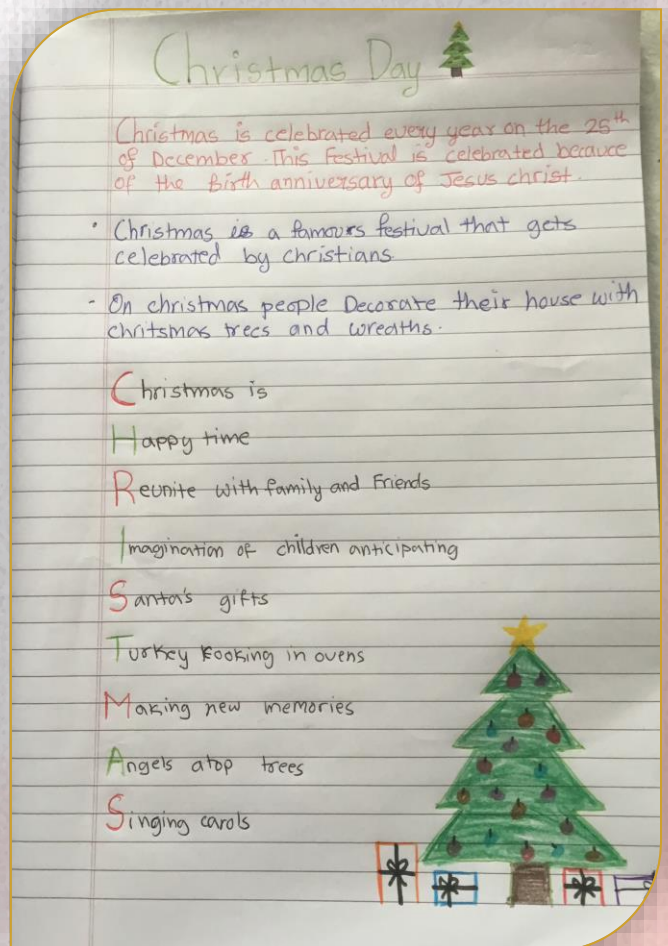 Christmas Day
Christmas is celebrated every year on the 25th
of December. This Festival is celebrated becauce
of the Birth anniversary of Jesus christ.
· Christmas is a famours festival that gets
celebrated by christians
- On christmas people Decorate their house with
chritsmas trees and wreaths.
Christmas is
Happy time
Reunite with family and Friends
Imagination of children anticipating
Santa's gifts
Turkey kooking in ovens
Making new memories
Angels atop trees
Singing carols